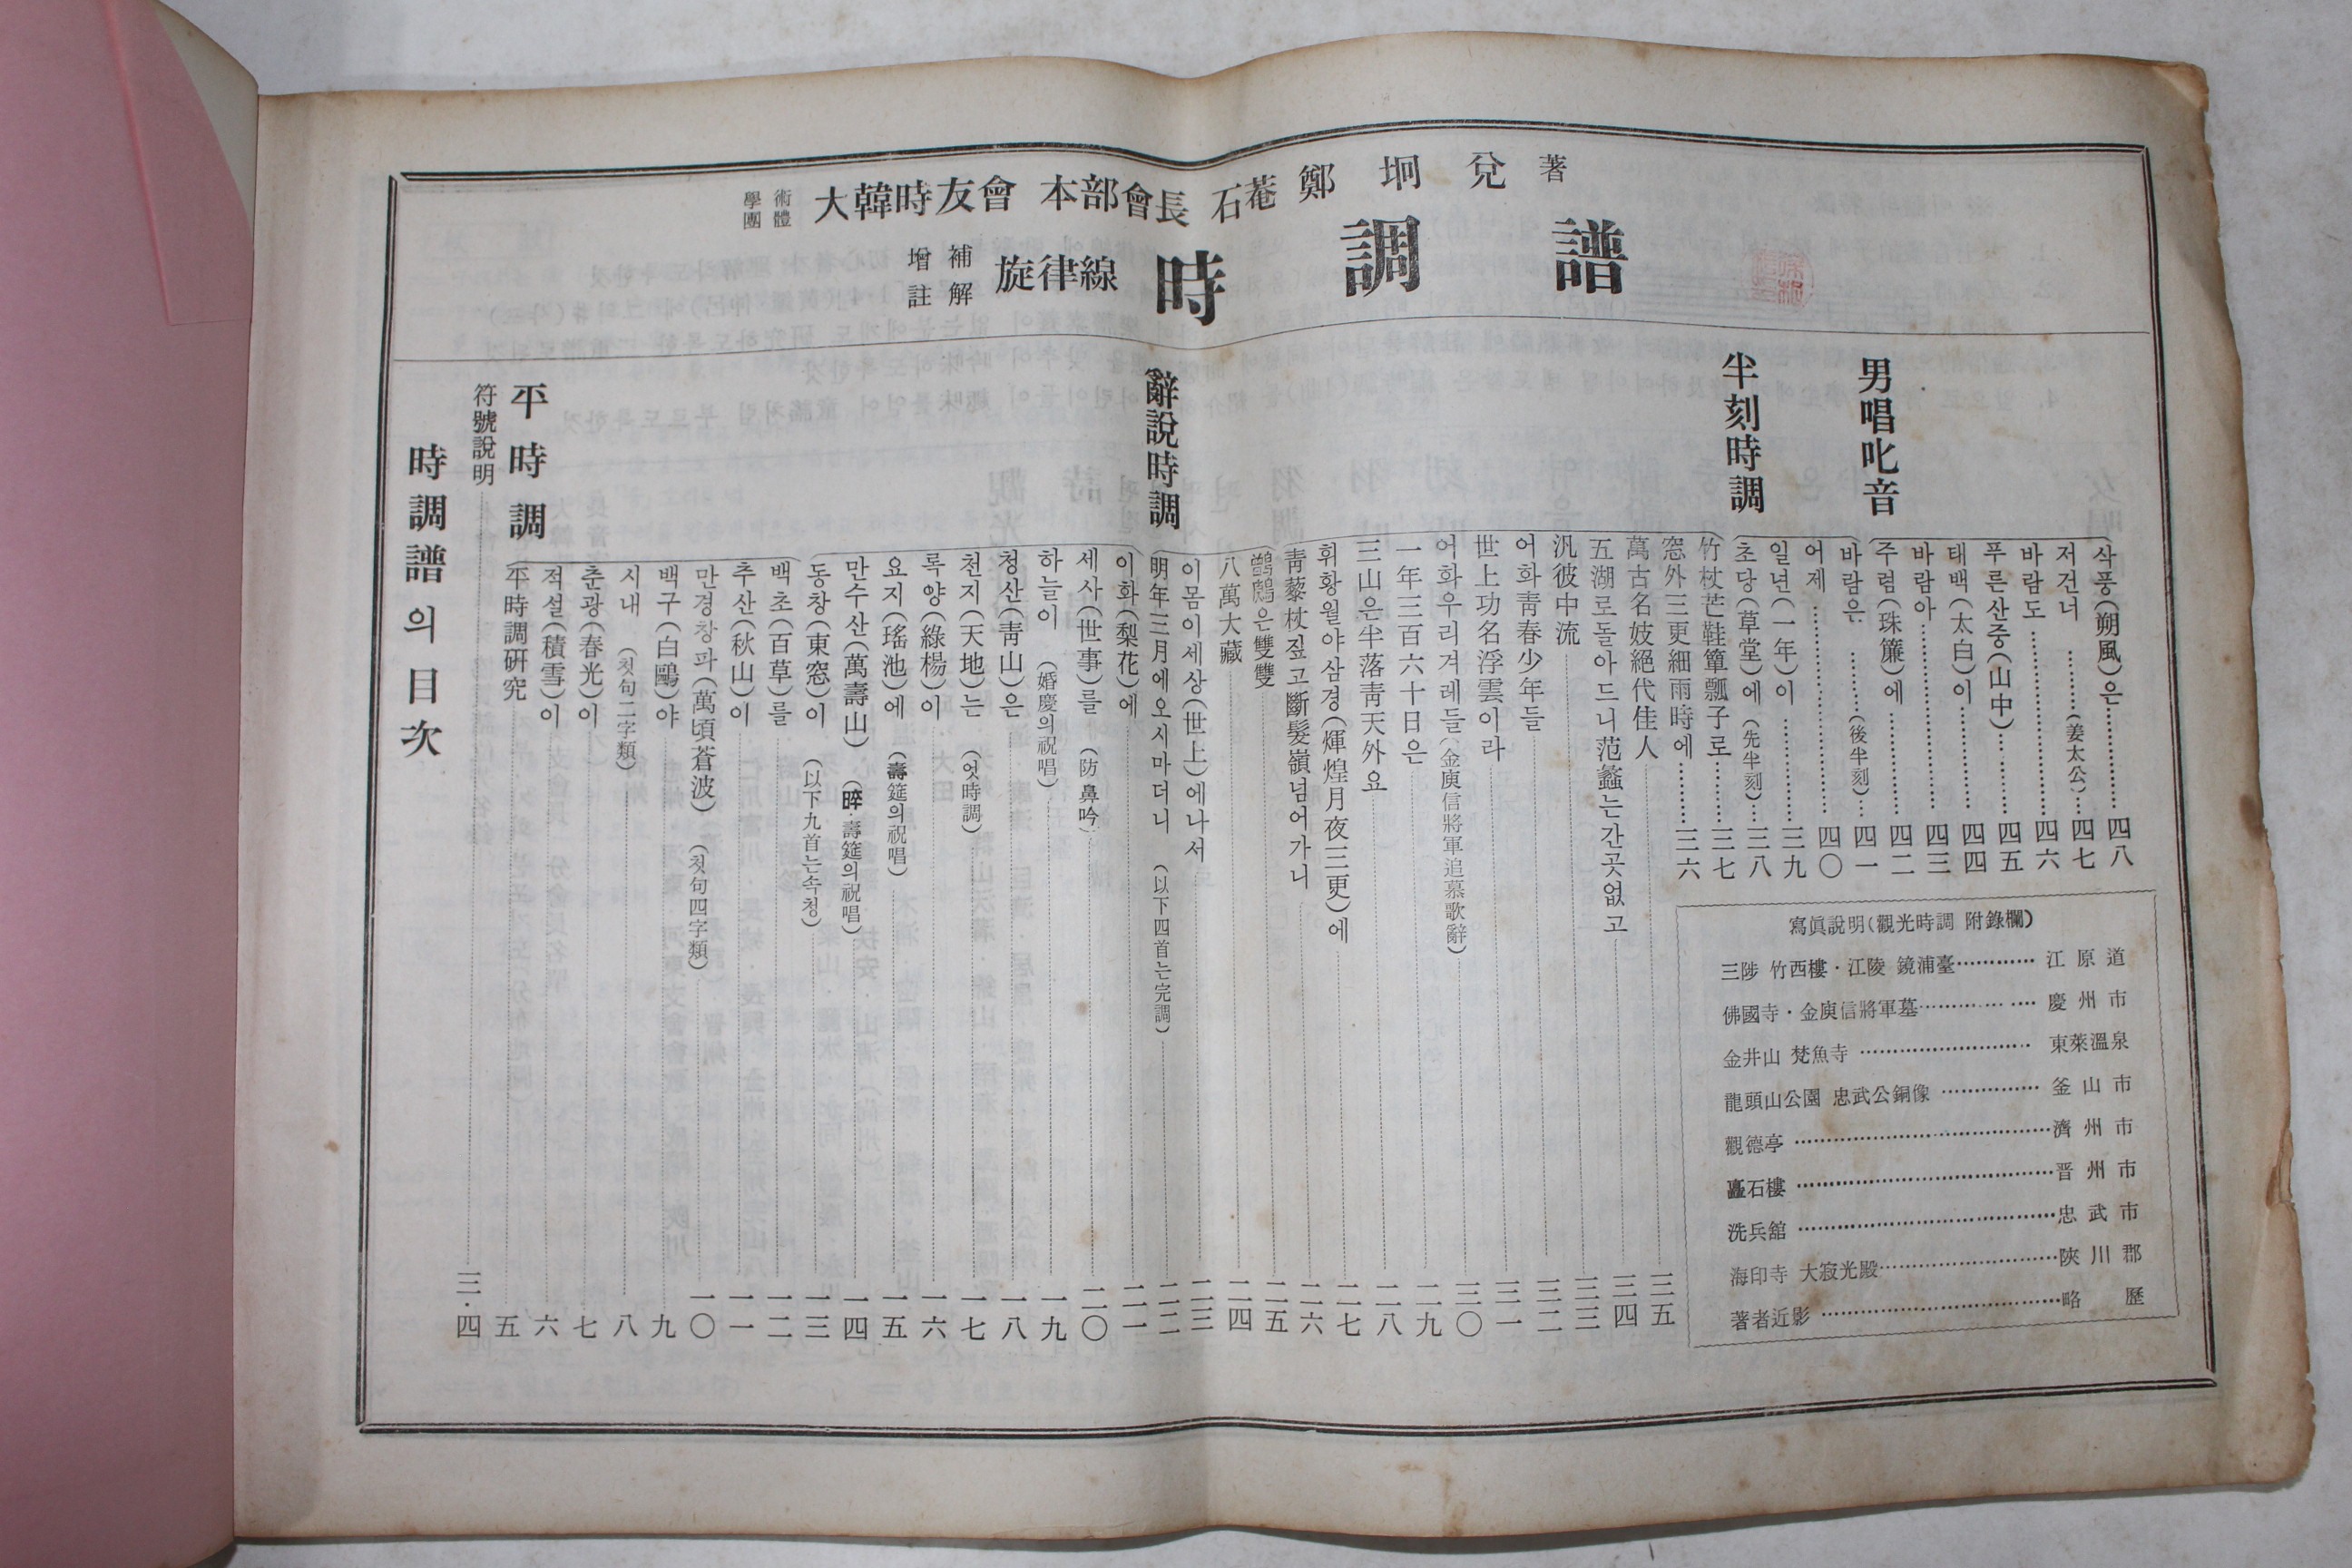 學術
團體
大韓時友會 本部會長 石菴 鄭坰兌 著
增補
註解
旋律線 時調譜
時調譜의目次
符號說明 三·四
平時調
平時調硏究 五
적설(積雪)이 六
춘광(春光)이 七
시내 (칫句二字類) 八
백구(白鷗)야 九
만경창파(萬頃蒼波) (칫句四字類) 一〇
추산(秋山)이 一一
백초(百草)를 一二
동창(東窓)이 (以下九首는속청) 一三
만수산(萬壽山) (晬·壽筵의祝唱) 一四
요지(瑤池)에 (壽筵의祝唱) 一五
록양(綠楊)이 一六
천지(天地)는 (엇時調) 一七
청산(靑山)은 一八
하늘이 (婚慶의祝唱) 一九
세사(世事)를 (防鼻吟) 二〇
이화(梨花)에 二一
辭說時調
明年三月에오시마더니 (以下四首는完調) 二二
이몸이세상(世上)에나서 二三
八萬大藏 二四
은雙雙 二五
靑藜杖짚고斷髮嶺넘어가니 二六
휘황월야삼경(輝煌月夜三更)에 二七
三山은半落靑天外요 二八
一年三百六十日은 二九
어화우리겨레들(金庾信將軍追慕歌辭) 三〇
世上功名浮雲이라 三一
어화靑春少年들 三二
汎彼中流 三三
五湖로돌아드니范蠡는간곳없고 三四
萬古名妓絕代佳人 三五
窓外三更細雨時에 三六
竹杖芒鞋簞瓢子로 三七
半刻時調
초당(草堂)에 (先半刻) 三八
일년(一年)이 三九
어제 四〇
바람은 (後半刻) 四一
男唱叱音
주렴(珠簾)에 四二
바람아 四三
태백(太白)이 四四
푸른산중(山中) 四五
바람도 四六
저건너 (姜太公) 四七
삭풍(朔風)은 四八
寫眞說明(觀光時調 附錄欄)
三陟 竹西樓·江陵 鏡浦臺 江原道
佛國寺·金庾信將軍墓 慶州市
金井山 梵魚寺 東萊溫泉
龍頭山公園 忠武公銅像 釜山市
觀德亭 濟州市
矗石樓 晋州市
洗兵舘 忠武市
海印寺 大寂光殿 陜川郡
著者近影 略歷